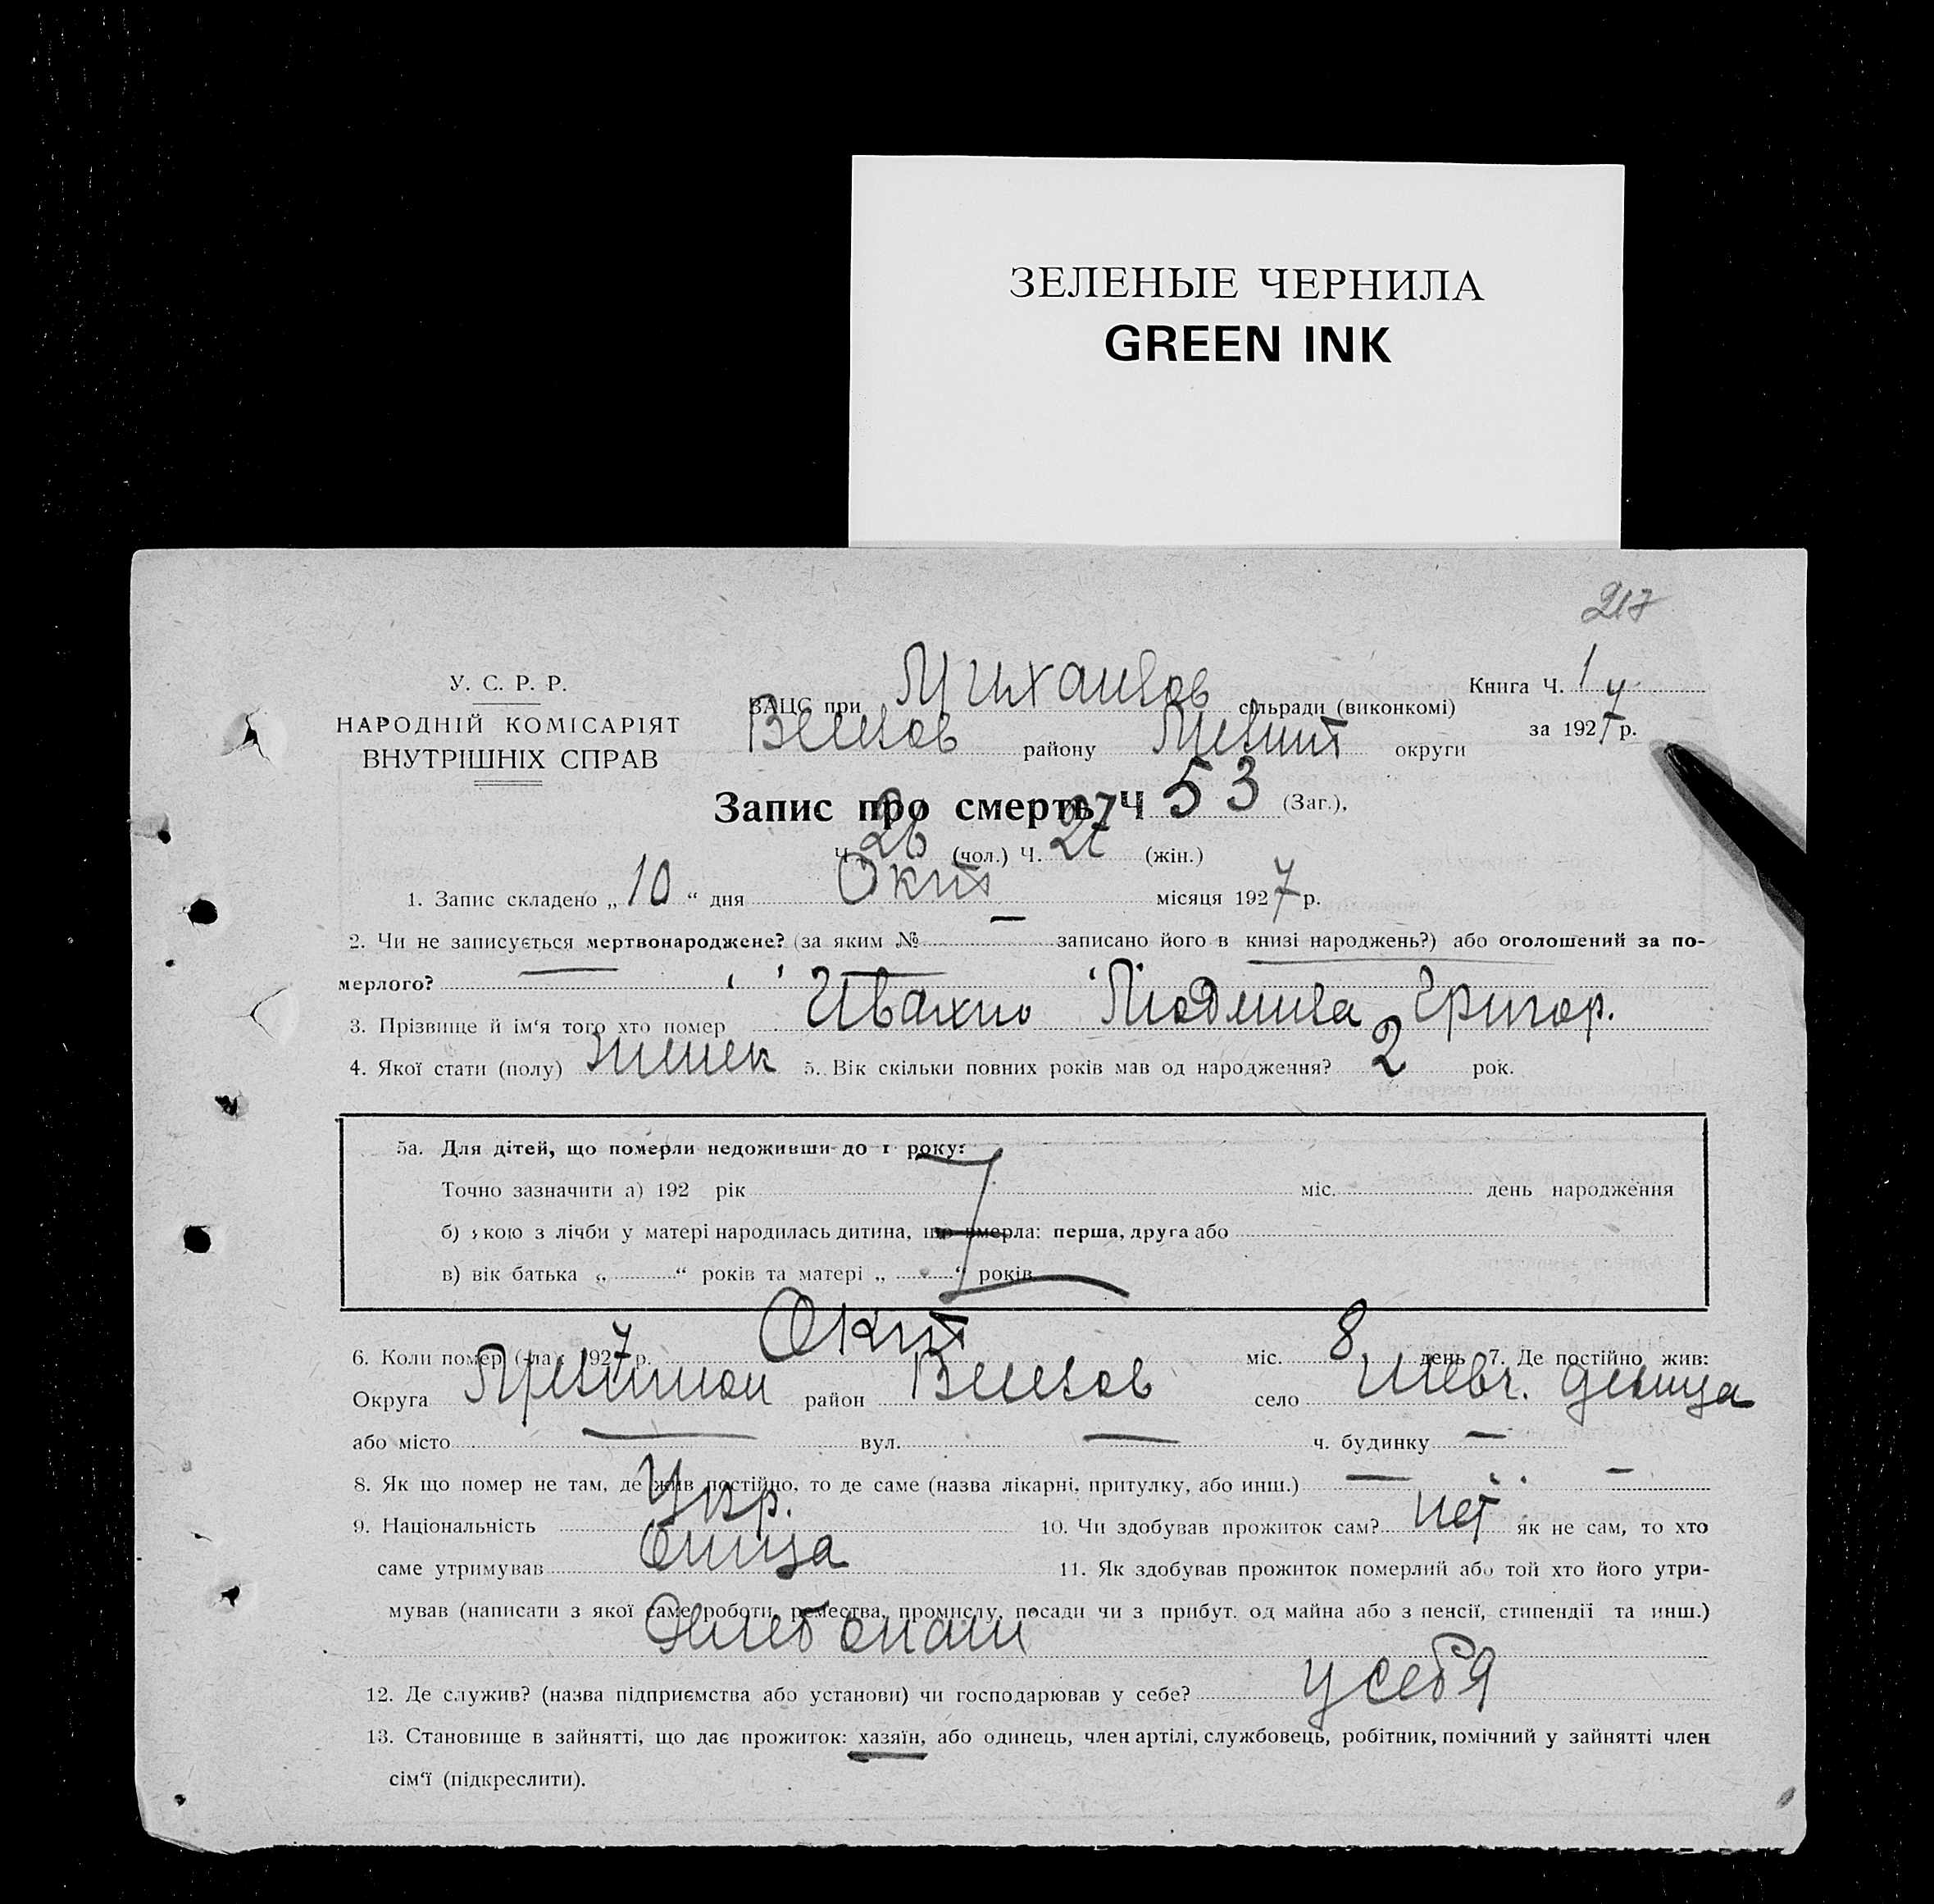 ЗЕЛЕНЫЕ ЧЕРНИЛА
GREEN INK
217
У. С. Р. Р.
НАРОДНІЙ КОМІСАРІЯТ
ВНУТРІШНІХ СПРАВ
ЗАЦС при Михайлов сільради (виконкомі)
района району округи
Книга Ч. 1
за 1927 р.
Запис про смерть Ч 53 (Заг.),
Ч. 26 (чол.) Ч. 27 (жін.)
1. Запис складено „10“ дня Окт місяця 1927 р.
2. Чи не записується мертвонароджене? (за яким № — записано його в книзі народжень?) або оголошений за по-
мерлого? —
3. Прізвище й ім‘я того хто помер Ивахно Людмила Григор.
4. Якої стати (полу) 5. Вік скільки повних років мав од народження? 2 рок.
5а. Для дітей, що померли недоживши до 1 року:
Точно зазначити а) 192 рік міс. день народження
б) якою з лічби у матері народилась дитина, що вмерла: перша, друга або
в) вік батька „ “ років та матері „ “ років
6. Коли помер (-ла): 1927 р. Окт міс. 8 день 7. Де постійно жив:
Округа район село Шевч.
або місто — вул. — ч. будинку —
8. Як що помер не там, де жив постійно, то де саме (назва лікарні, притулку, або инш.) —
9. Національність Укр. 10. Чи здобував прожиток сам? нет як не сам, то хто
саме утримував Отца 11. Як здобував прожиток померлий або той хто його утри-
мував (написати з якої саме роботи, ремества, промислу, посади чи з прибут. од майна або з пенсії, стипендії та инш.)
12. Де служив? (назва підприємства або установи) чи господарював у себе? у себя
13. Становище в зайнятті, що дає прожиток: хазяїн, або одинець, член артілі, службовець, робітник, помічний у зайнятті член
сім‘ї (підкреслити).